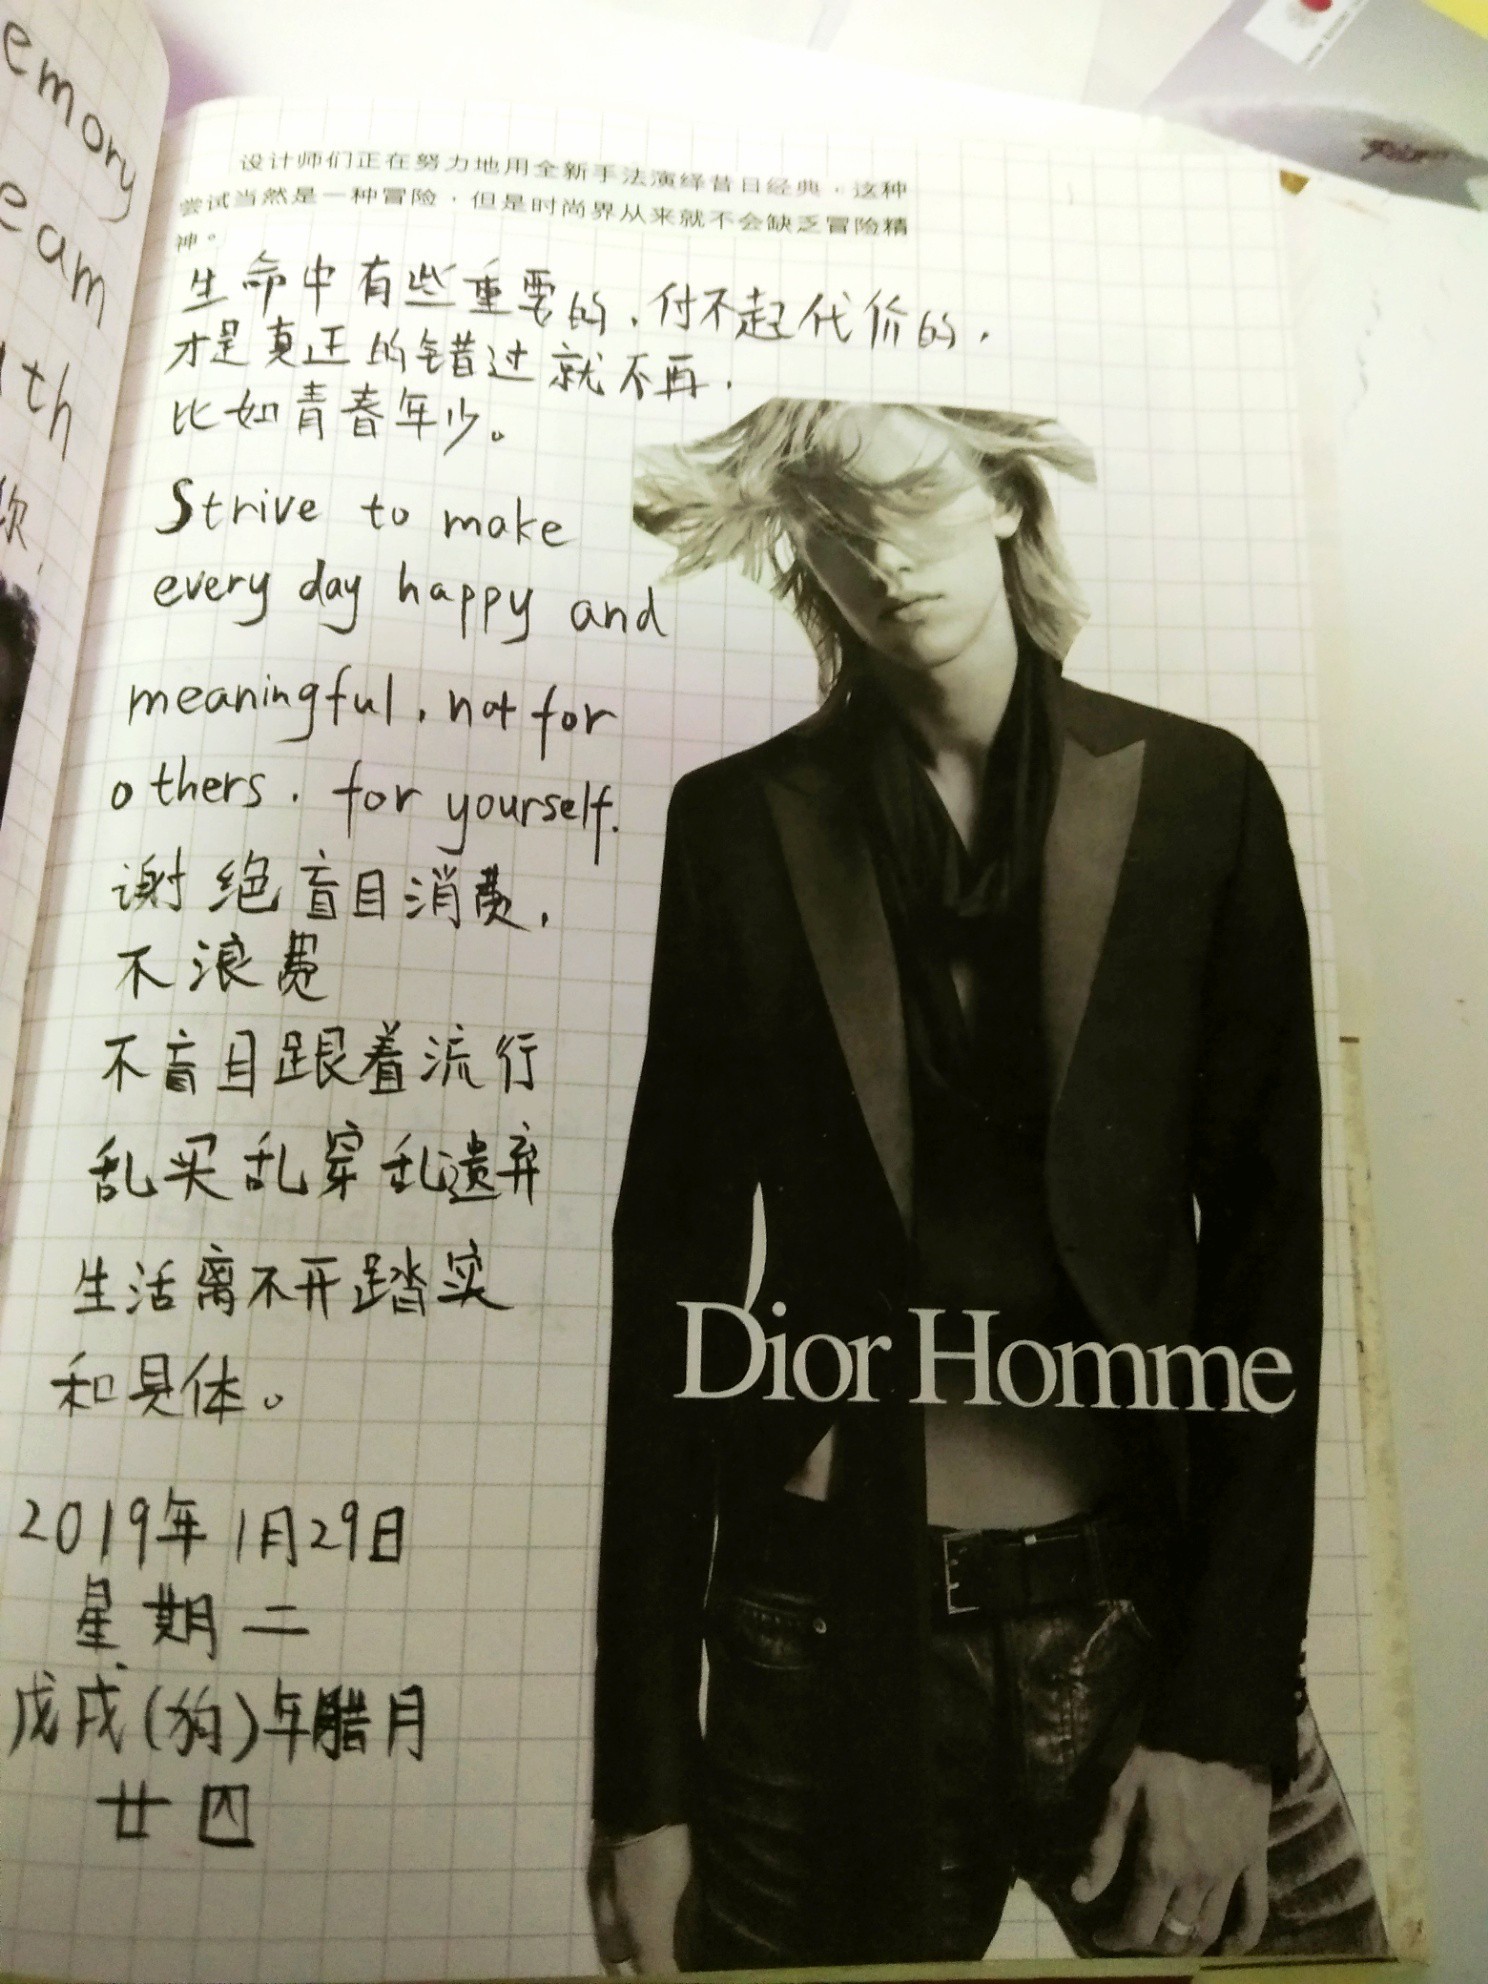 emory
eam
th
设计师们正在努力地用全新手法演绎昔日经典，这种
尝试当然是一种冒险，但是时尚界从来就不会缺乏冒险精
神。
生命中有些重要的，付不起代价的，
才是真正的错过就不再，
比如青春年少。
Strive to make
every day happy and
meaningful, not for
others. for yourself.
谢绝盲目消费，
不浪费
不盲目跟着流行
乱买乱穿乱遗弃
生活离不开踏实
和具体。
Dior Homme
2019年1月29日
星期二
戊戌(狗)年腊月
廿四